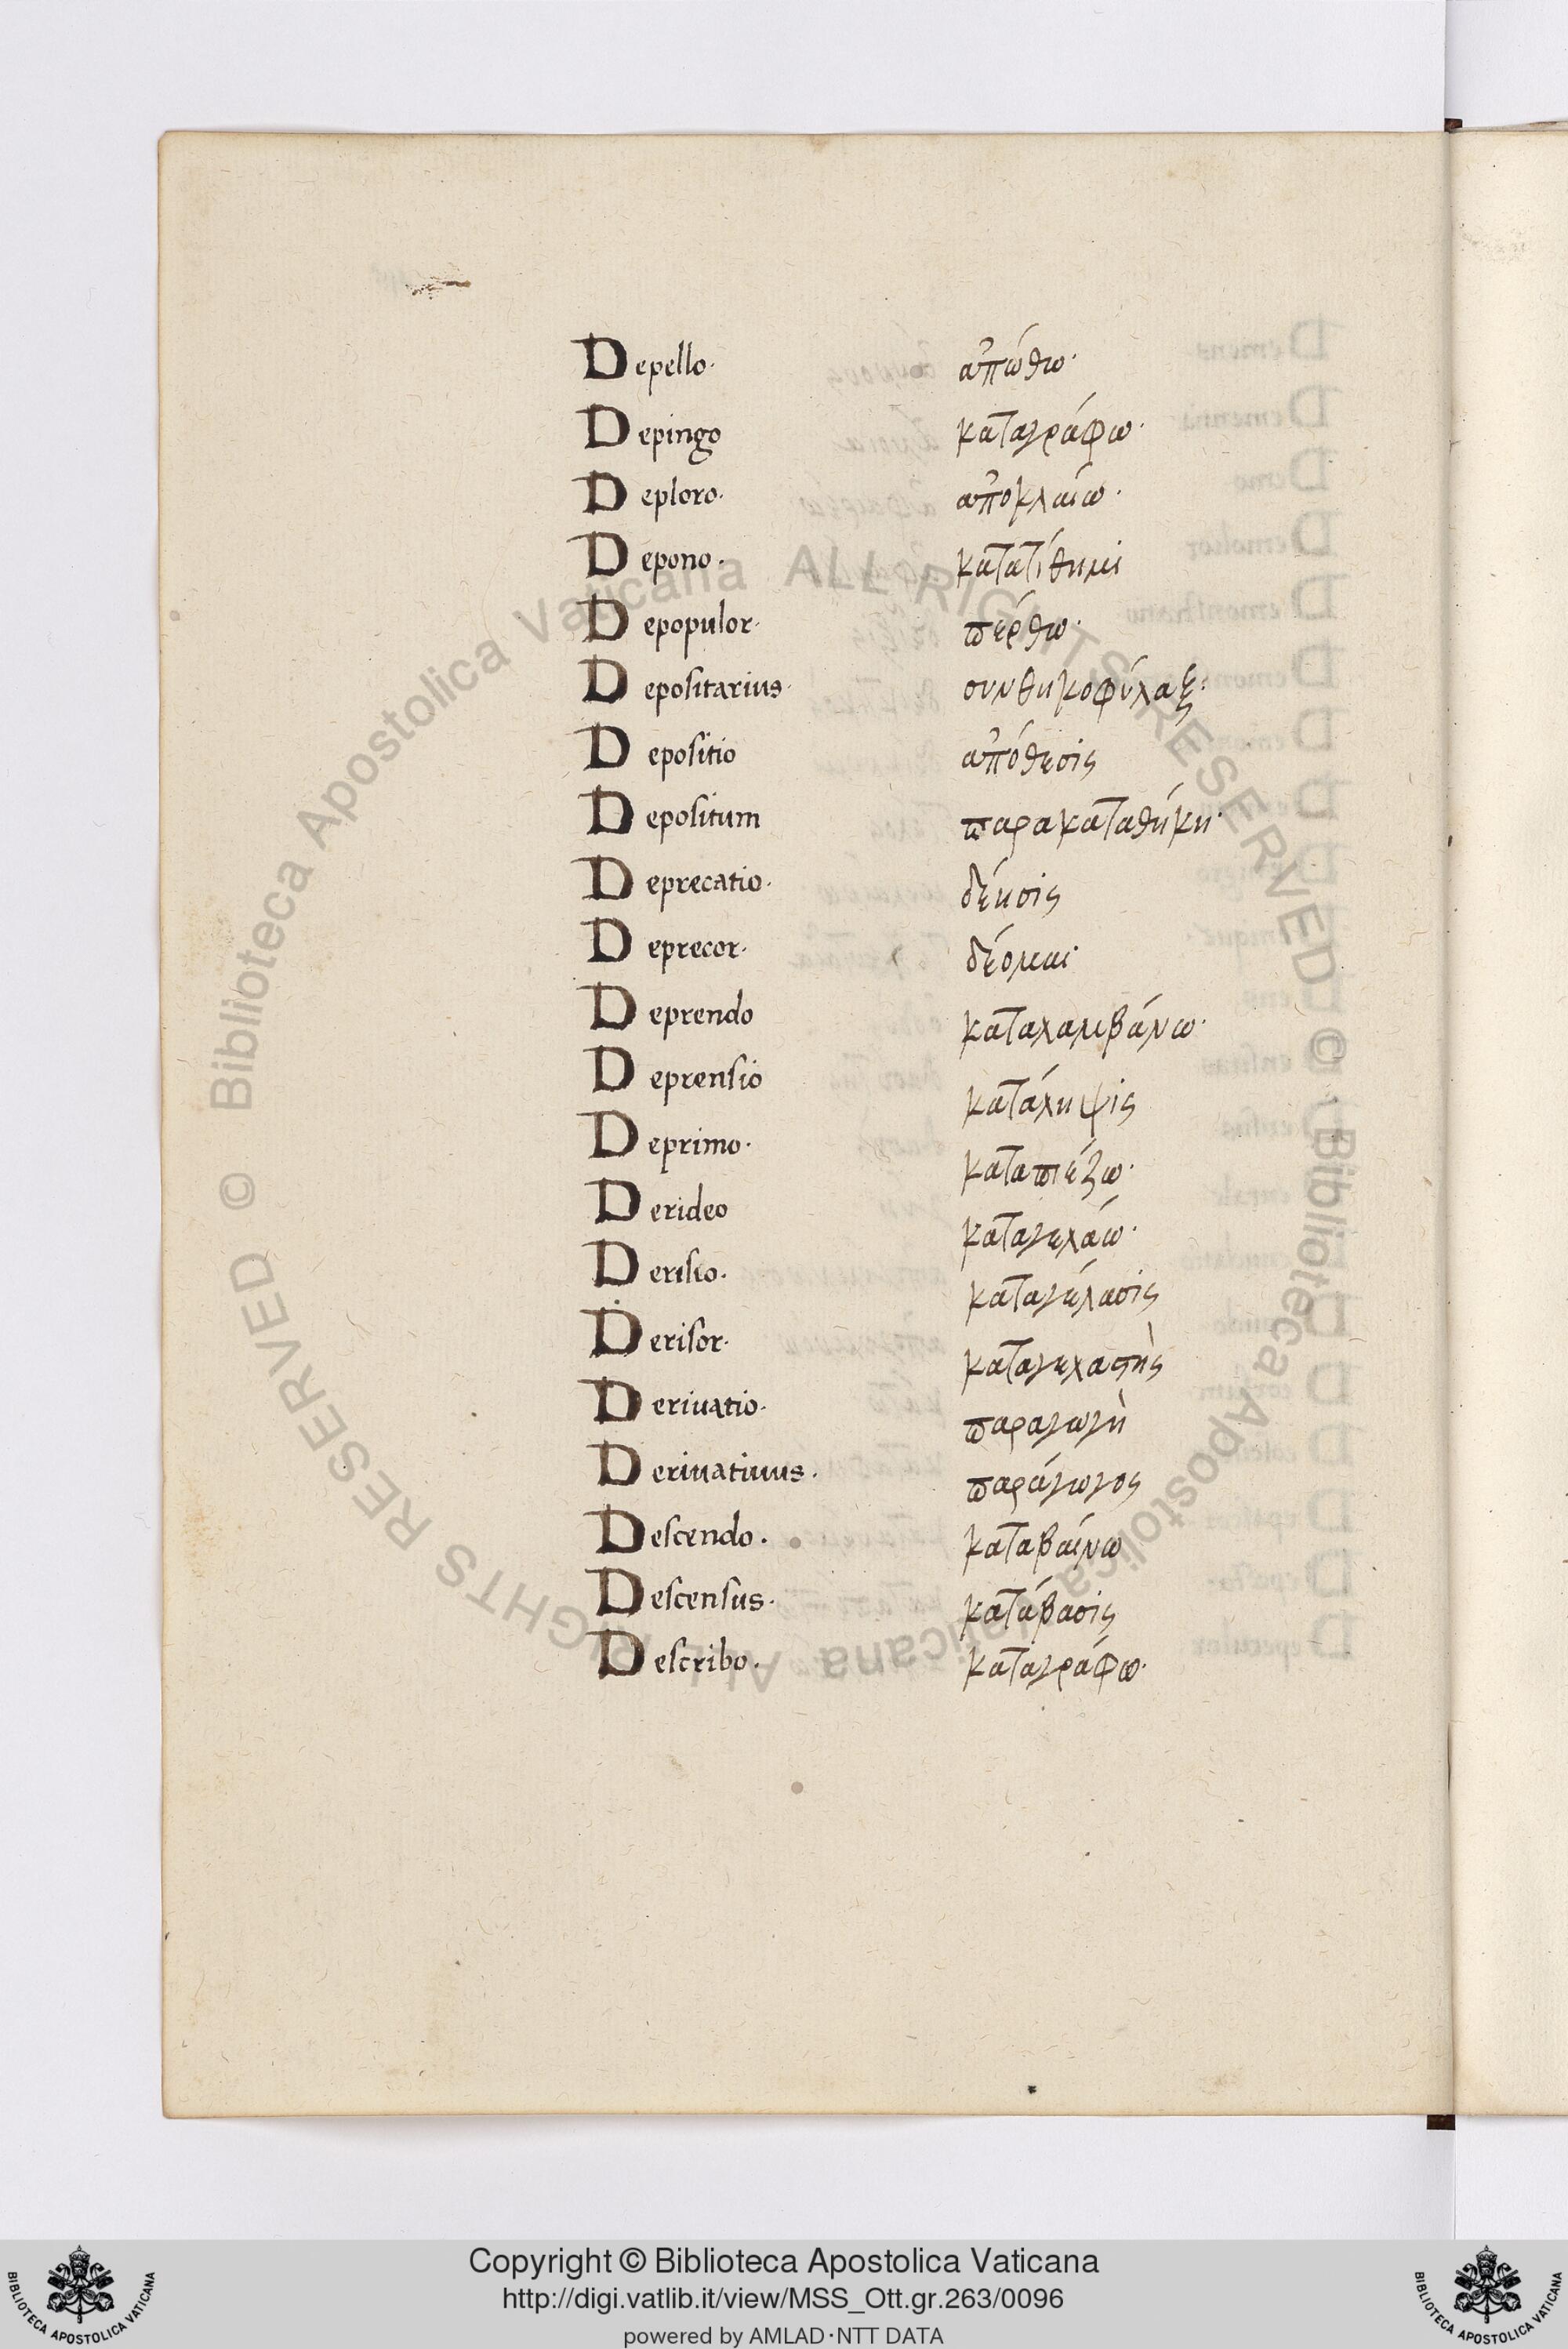 Depello· ἀπώθω·
Depingo καταγράφω·
Deploro· ἀποκλαίω·
Depono· κατατίθημι
Depopulor· πέρθω·
Depositarius· συνθηκοφύλαξ·
Depositio ἀπόθεσις
Depositum παρακαταθήκη·
Deprecatio· δέησις
Deprecor· δέομαι·
Deprendo καταλαμβάνω·
Deprensio κατάληψις
Deprimo· καταπιέζω·
Derideo καταγελάω·
Derisio· καταγέλασις
Derisor· καταγελαστὴς
Deriuatio· παραγωγὴ
Deriuatiuus· παράγωγος
Descendo· καταβαίνω
Descensus· κατάβασις
Describo· καταγράφω·
© Biblioteca Apostolica Vaticana ALL RIGHTS RESERVED © Biblioteca Apostolica Vaticana ALL RIGHTS RESERVED
Copyright © Biblioteca Apostolica Vaticana
http://digi.vatlib.it/view/MSS_Ott.gr.263/0096
powered by AMLAD·NTT DATA
BIBLIOTECA APOSTOLICA VATICANA
BIBLIOTECA APOSTOLICA VATICANA